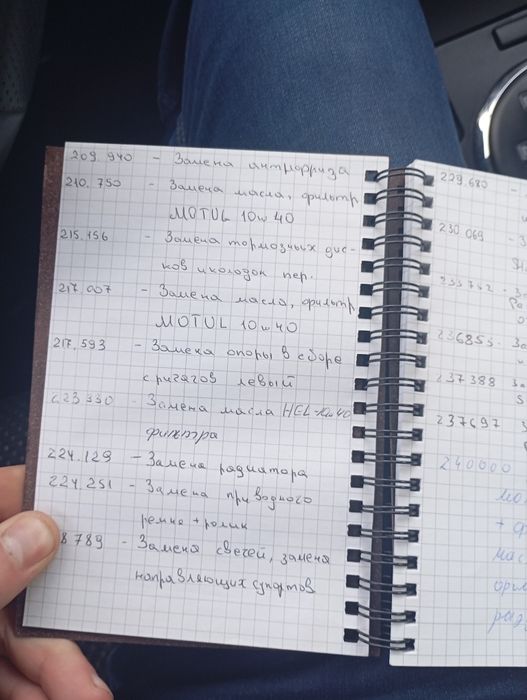 209.940 - Замена антифриза
210.750 - Замена масла, фильтр
MOTUL 10w40
215.156 - Замена тормозных дис-
ков и колодок пер.
217.007 - Замена масла, фильтр
MOTUL 10w40
217.593 - Замена опоры в сборе
с рычагов левый
223330 - Замена масла HEL 40
фильтра
224.129 - Замена радиатора
224.251 - Замена приводного
ремня + ролик
8789 - Замена свечей, замена
направляющих супортов
229.680 -
230.069 - З
237388 За
237697
240000